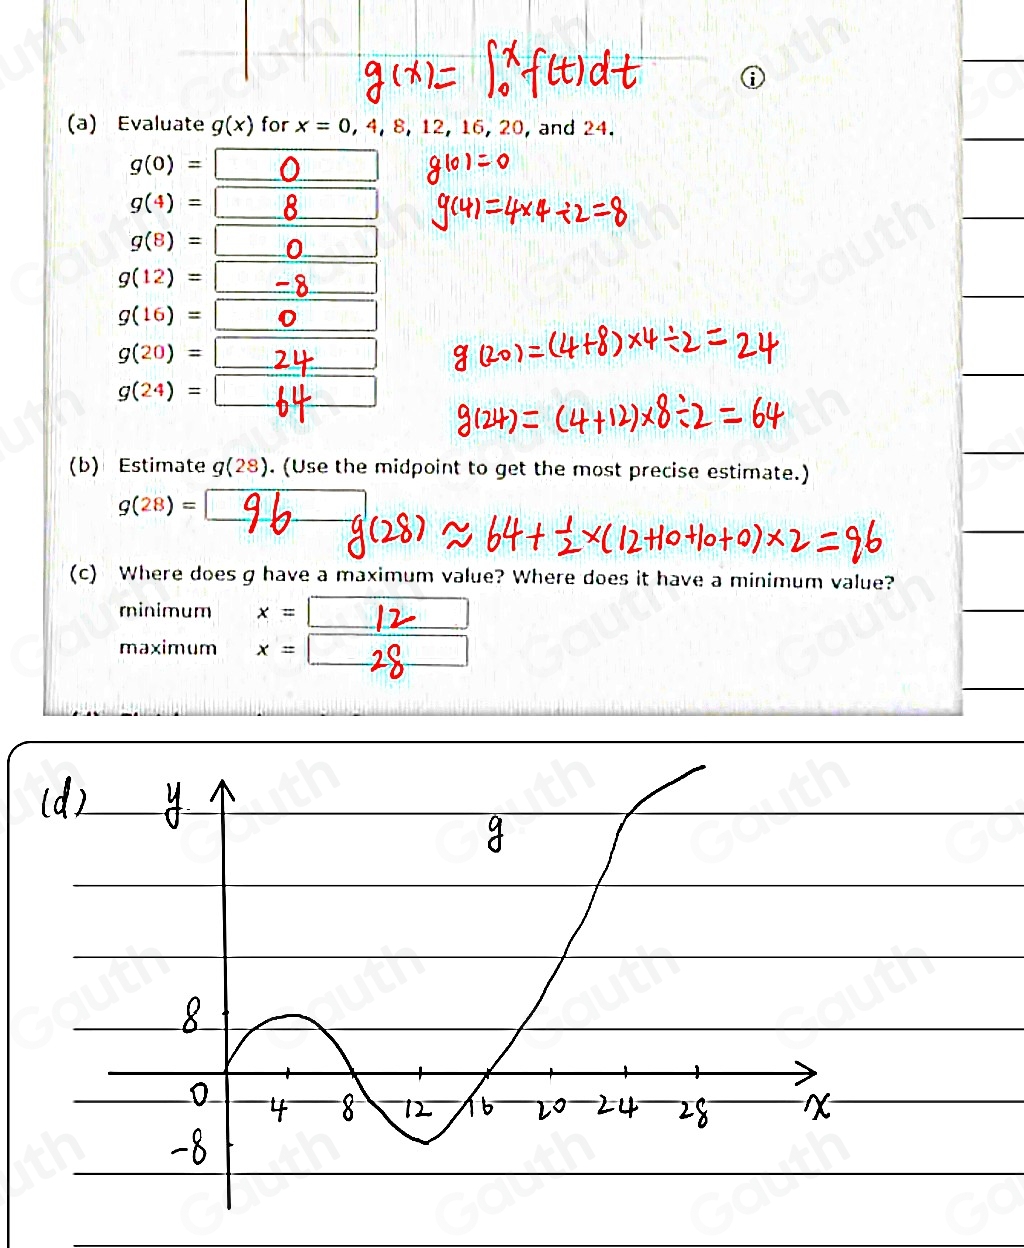 g(x)= ∫₀ˣ f(t)dt
(a) Evaluate g(x) for x = 0, 4, 8, 12, 16, 20, and 24.
g(0) = 0 g(0)=0
g(4) = 8 g(4)=4×4÷2=8
g(8) = 0
g(12) = -8
g(16) = 0
g(20) = 24 g(20)=(4+8)×4÷2=24
g(24) = 64 g(24)=(4+12)×8÷2=64
(b) Estimate g(28). (Use the midpoint to get the most precise estimate.)
g(28) = 96 g(28)≈64+½×(12+10+10+0)×2=96
(c) Where does g have a maximum value? Where does it have a minimum value?
minimum x = 12
maximum x = 28
(d) y
g
8
0 4 8 12 16 20 24 28 x
-8
Gauth